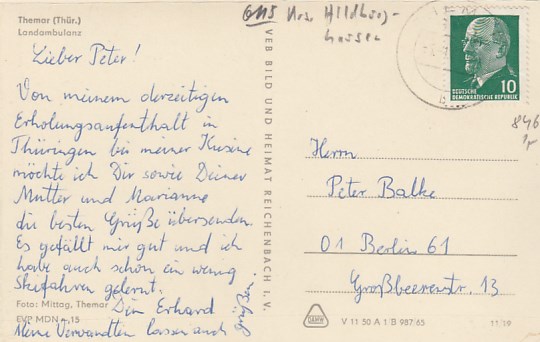 Themar (Thür.)
Landambulanz
6115 Krs. Hildburg-
hausen
Lieber Peter!
Von meinem derzeitigen
Erholungsaufenthalt in
Thüringen bei meiner Kusine
möchte ich Dir sowie Deiner
Mutter und Marianne
die besten Grüße übersenden.
Es gefällt mir gut und ich
habe auch schon ein wenig
Skifahren gelernt.
Dein Erhard
Meine Verwandten lassen auch
grüßen!
Foto: Mittag, Themar
EVP MDN -,15
VEB BILD UND HEIMAT REICHENBACH I. V.
10
DEUTSCHE
DEMOKRATISCHE REPUBLIK
846
Herrn
Peter Balke
01 Berlin 61
Großbeerenstr. 13
V 11 50 A 1/B 987/65
11/19